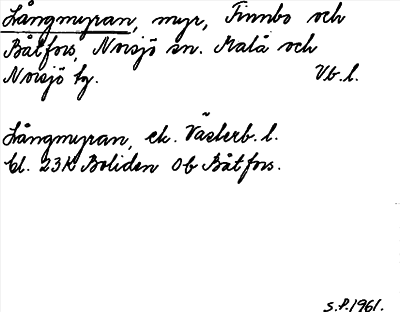 Långmyran, myr, Finnbo och
Båtfors, Norsjö sn. Malå och
Norsjö tg. Vb. l.
Långmyran, ek. Västerb. l.
bl. 23K Boliden 0b Båtfors.
S.P. 1961.